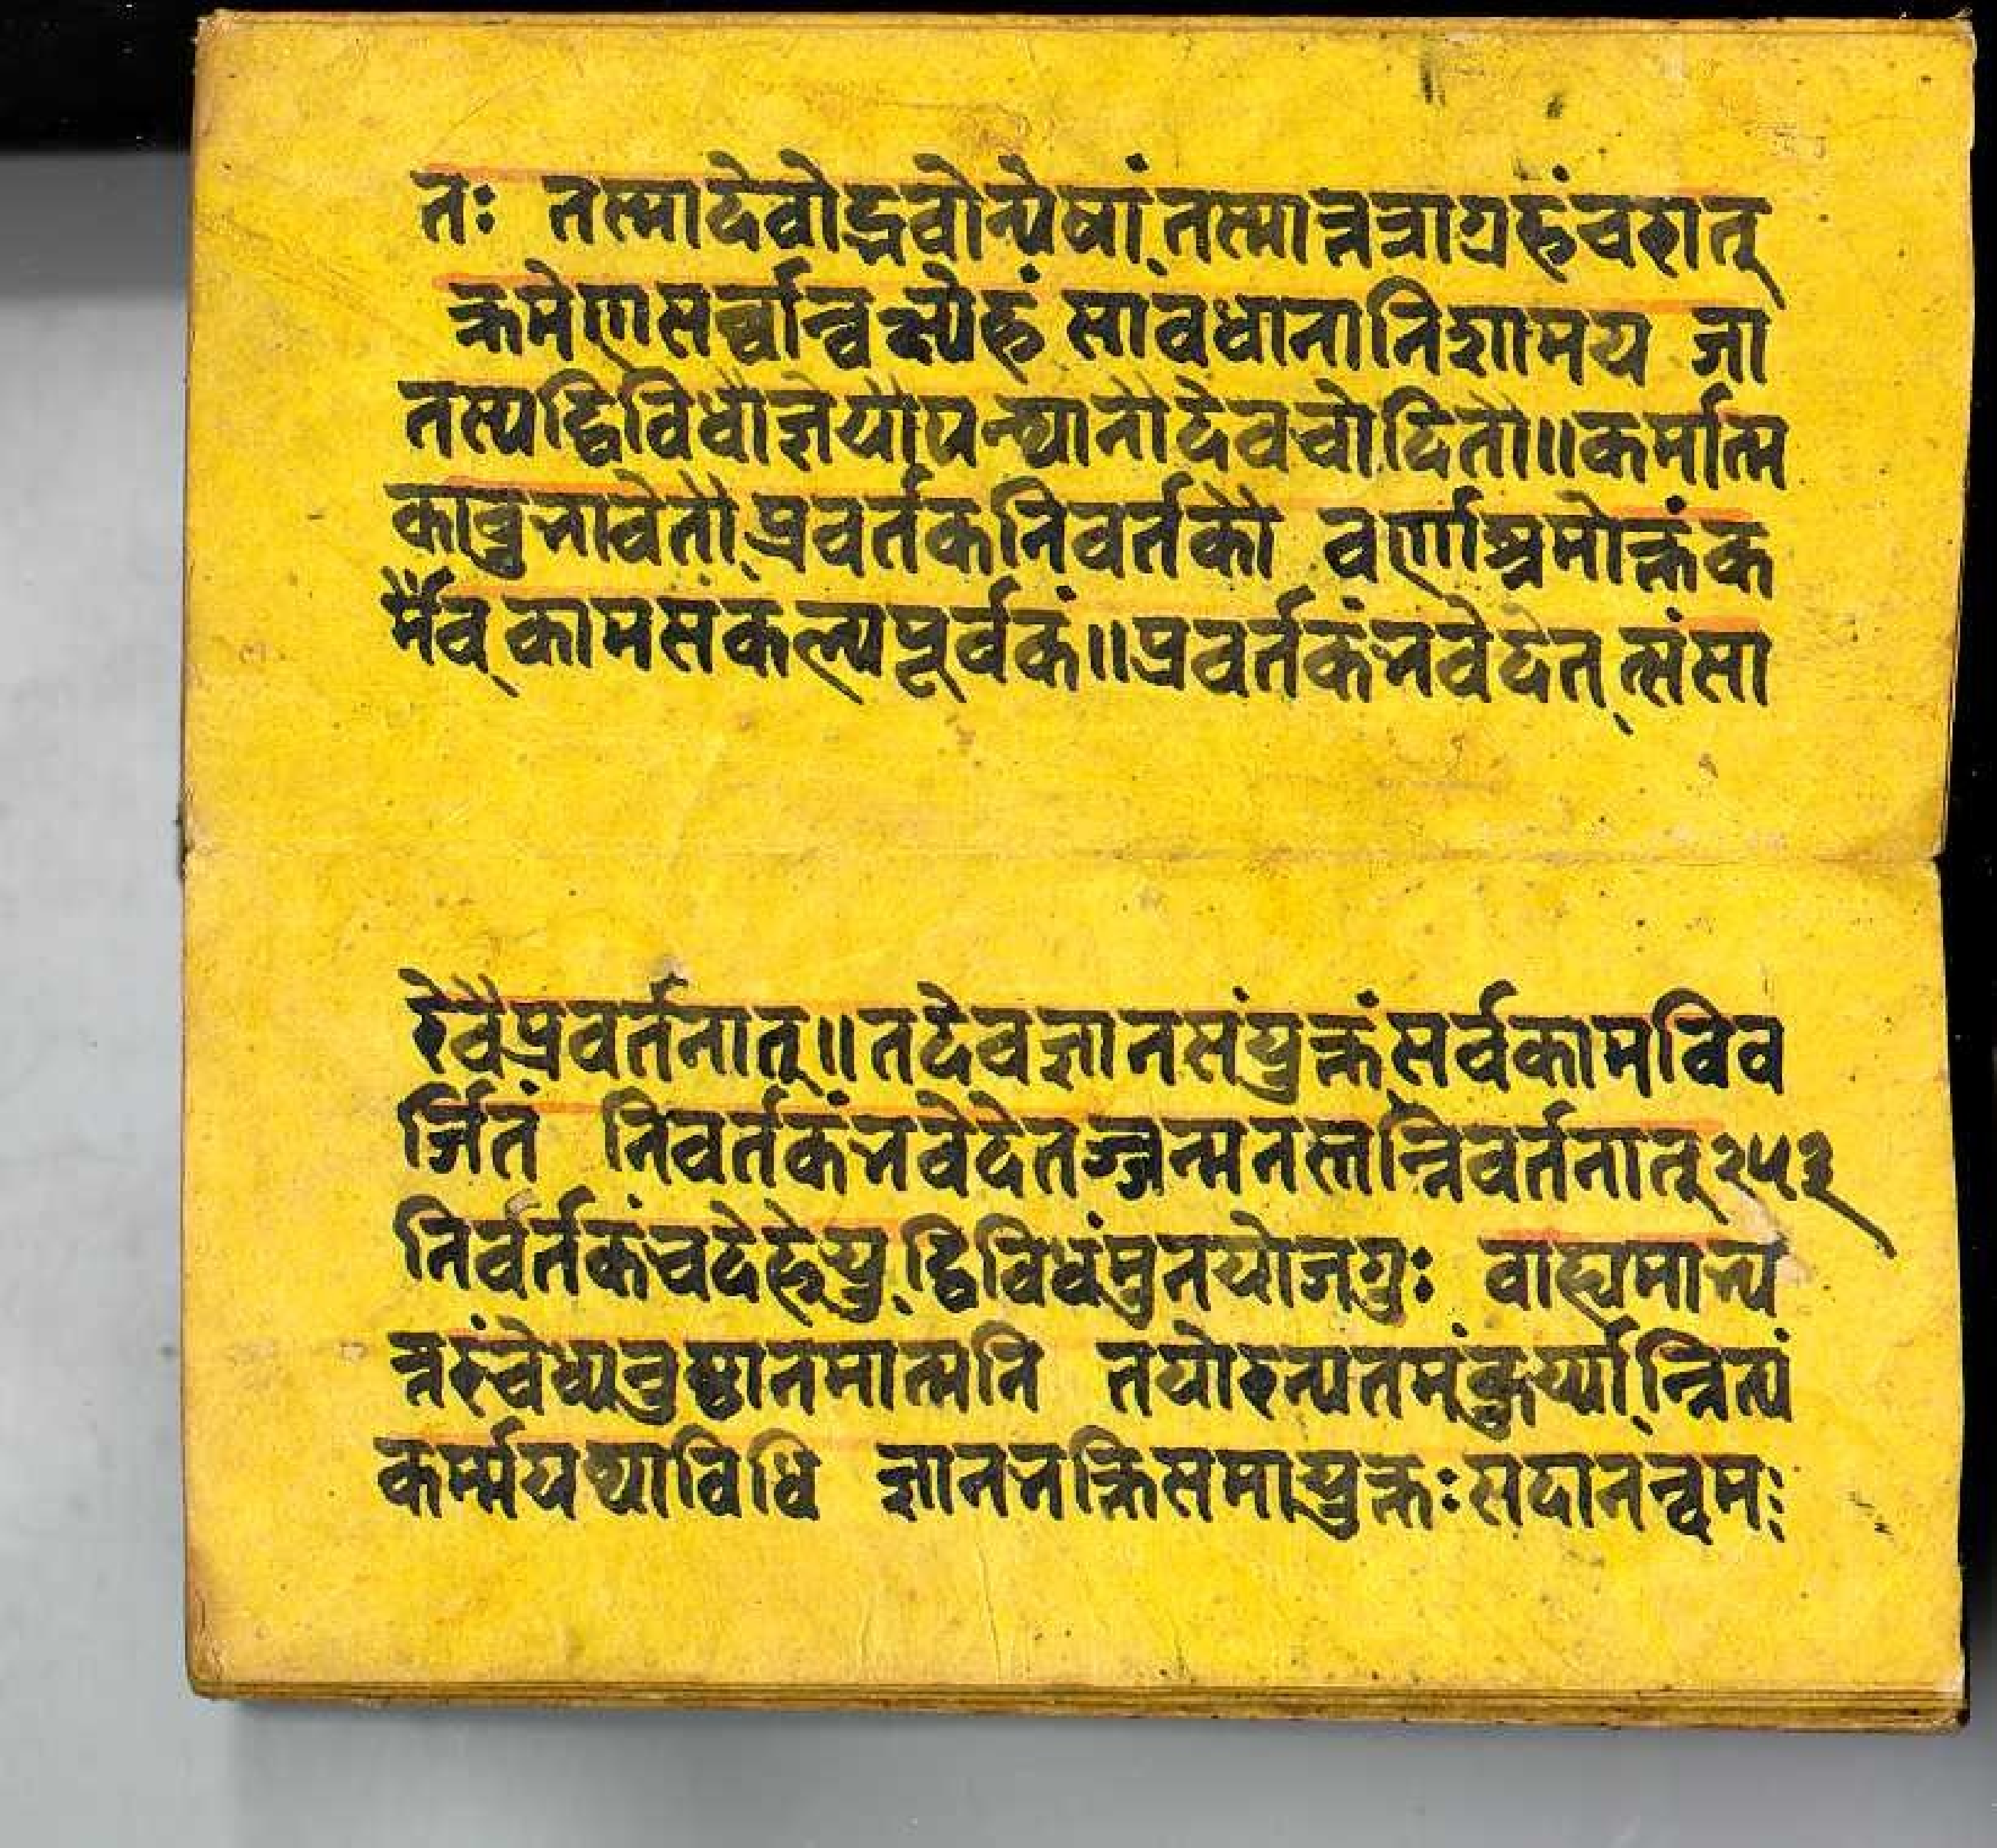 तः तस्मादेवोद्भवोन्येषां तस्मान्नत्राग्रहंचरात्
क्रमेणसर्व्वान्वक्ष्येहं सावधानानिशामय जा
तस्यद्विविधौज्ञेयौपन्थानौदेवचोदितौ॥कर्मात्म
कावुभावेतौ प्रवर्तकनिवर्तकौ वर्णाश्रमोक्तंक
र्मैव कामसंकल्पपूर्वकं॥प्रवर्तकंभवेदेतत्संसा
रेवैप्रवर्तनात्॥तदेवज्ञानसंयुक्तंसर्वकामविव
र्जितं निवर्तकंभवेदेतज्जन्मनस्तन्निवर्तनात्२५३
निवर्तकंचदेहेयु द्विविधंमुनयोजगुः वाह्यमाभ्य
न्तरंचेध्यनुष्ठानमात्मनि तयोरन्यतमंकुर्य्यान्नित्यं
कर्म्मयथाविधि ज्ञानभक्तिसमायुक्तःसदानन्वमः